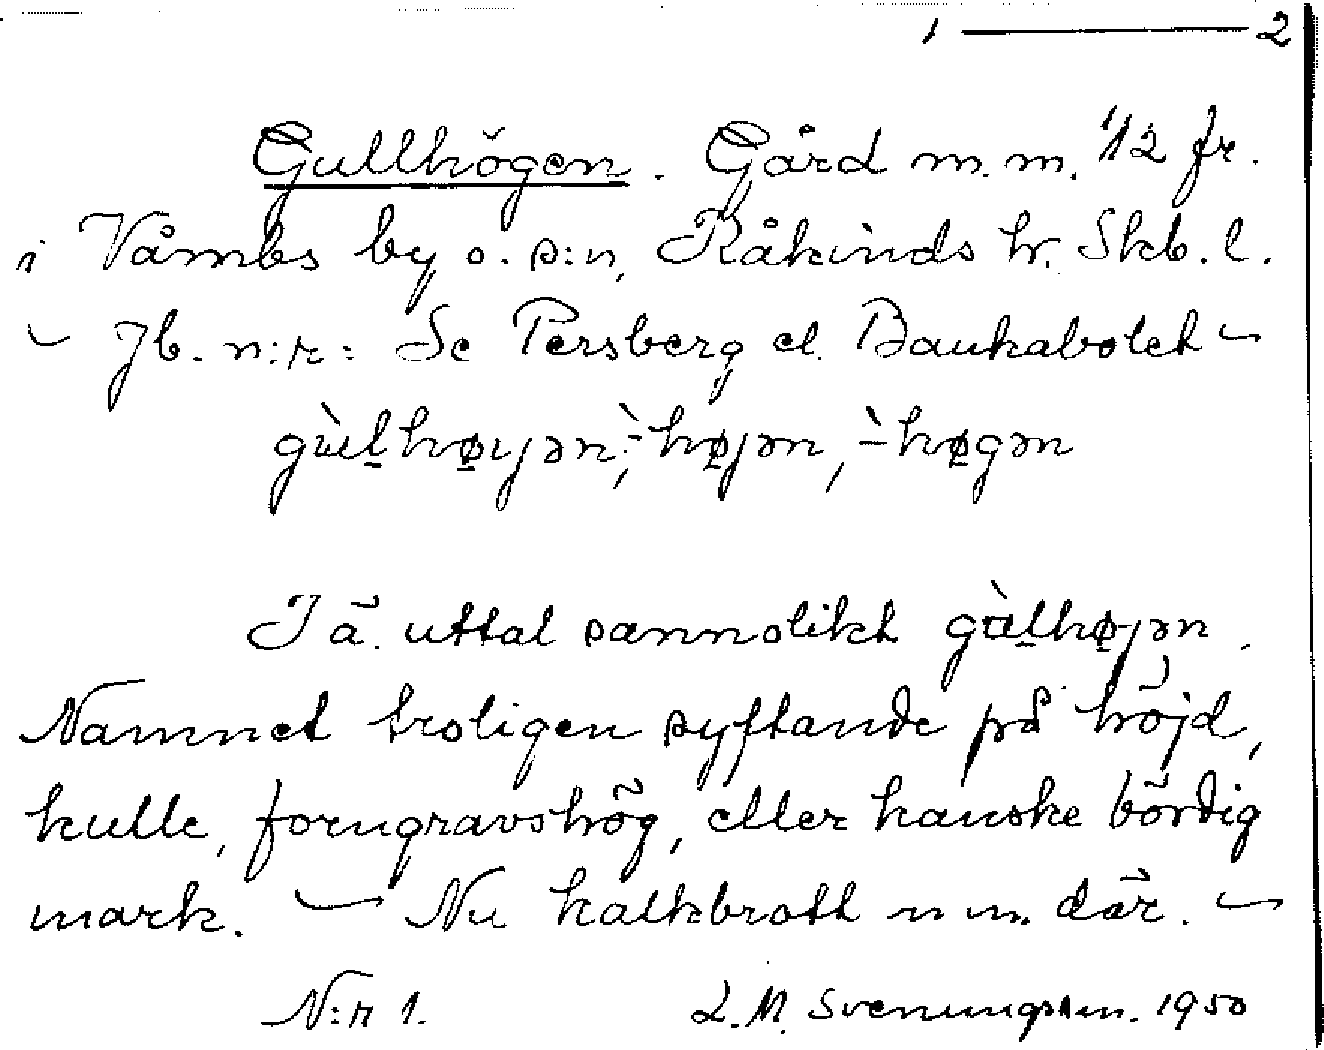 1 — 2
Gullhögen. Gård m.m. 1/2 fr.
i Våmbs by o. s:n, Kåkinds hr. Skb. l.
– Jb. n:r: Se Persberg el. Backabolet –
gùl̠hø̠yən, ̀-hø̠jən, ̀-hø̠gən
I ä. uttal sannolikt gùl̠hø̠jən.
Namnet troligen syftande på höjd,
kulle, forngravshög, eller kanske bördig
mark. – Nu kalkbrott m m. där. –
N:r 1. L.M. Svenungsson. 1950